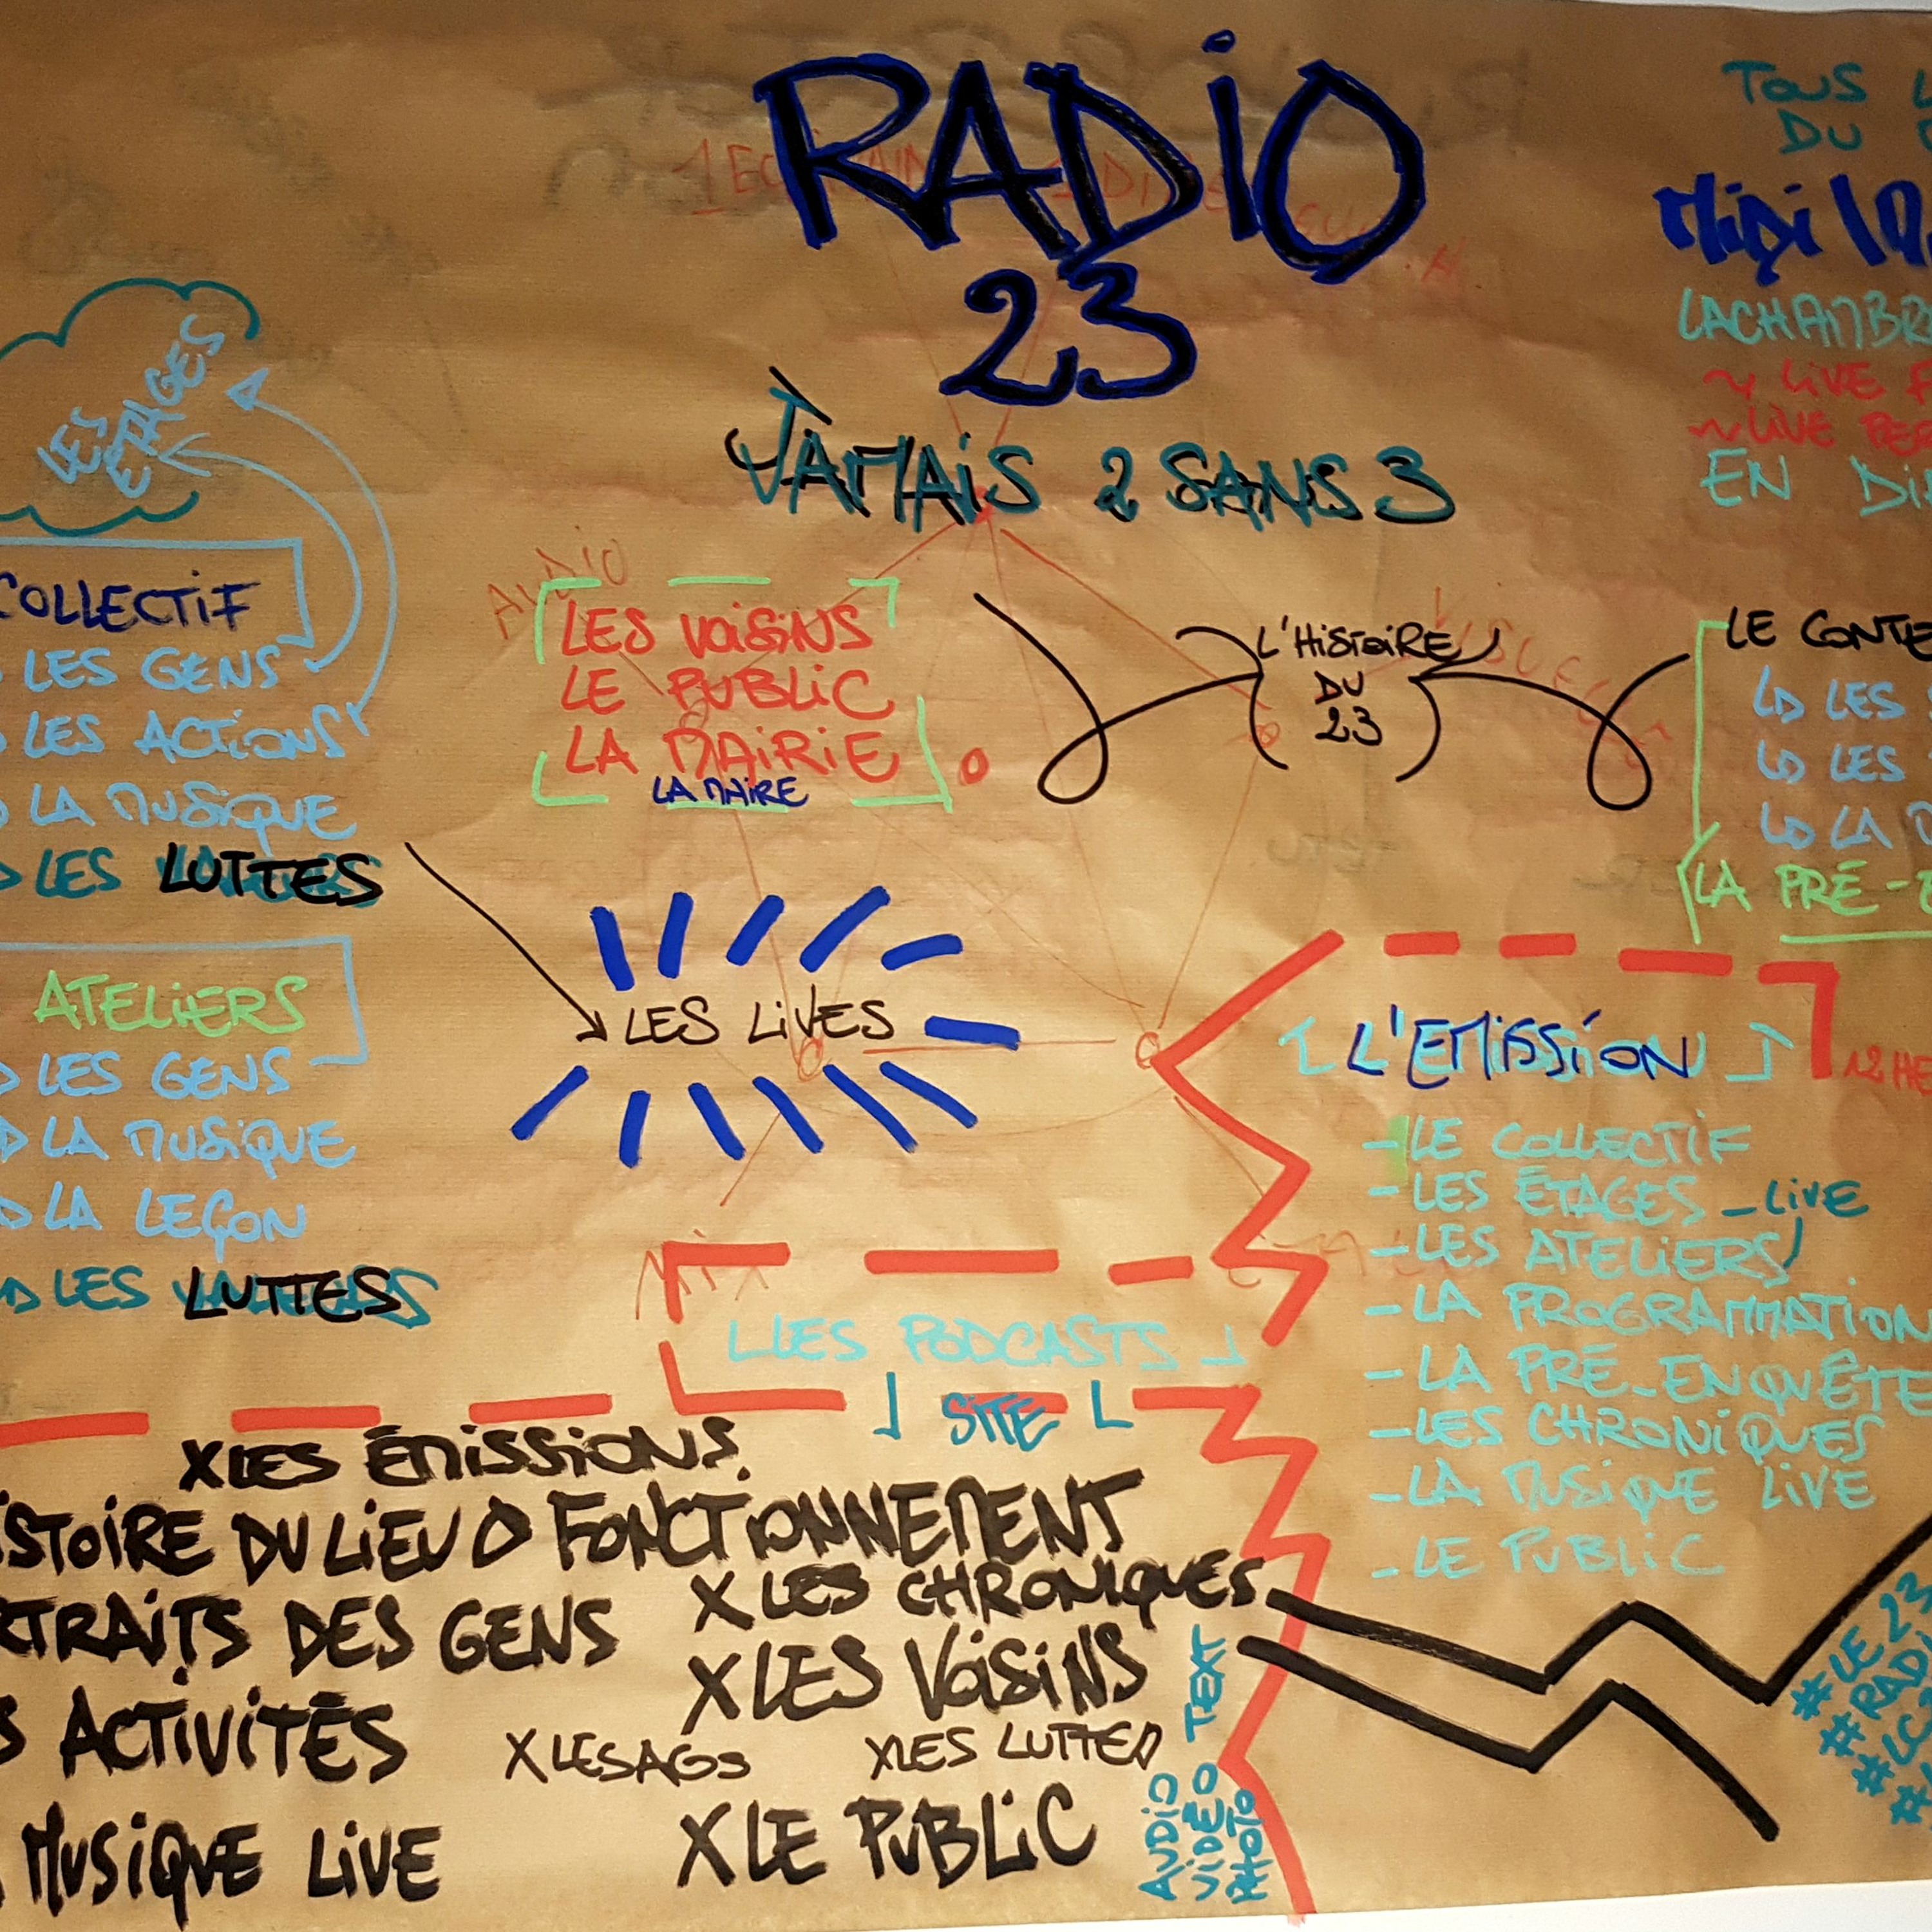 RADIO
23
JAMAIS 2 SANS 3
TOUS
DU
MIDI
LIVE
LIVE
EN
LES ETAGES
COLLECTIF
LES GENS
LES ACTIONS
LA MUSIQUE
LES LUTTES
ATELIERS
LES GENS
LA MUSIQUE
LA LEÇON
LES LUTTES
AUDIO
LES VOISINS
LE PUBLIC
LA MAIRIE
LA MAIRE
L'HISTOIRE
DU
23
LE
LES
LES
LA
LA PRÉ-
LES LIVES
L'EMISSION
12
-LE COLLECTIF
-LES ÉTAGES - LIVE
-LES ATELIERS
-LA PROGRAMMATION
-LA PRÉ-ENQUÊTE
-LES CHRONIQUES
-LA MUSIQUE LIVE
-LE PUBLIC
MIX
LES PODCASTS
SITE
X LES ÉMISSIONS
DU LIEU FONCTIONNEMENT
DES GENS
X LES CHRONIQUES
X LES VOISINS
ACTIVITÉS
X LES AGS
X LES LUTTES
MUSIQUE LIVE
X LE PUBLIC
AUDIO
VIDÉO TEXT
PHOTO
#LE 23